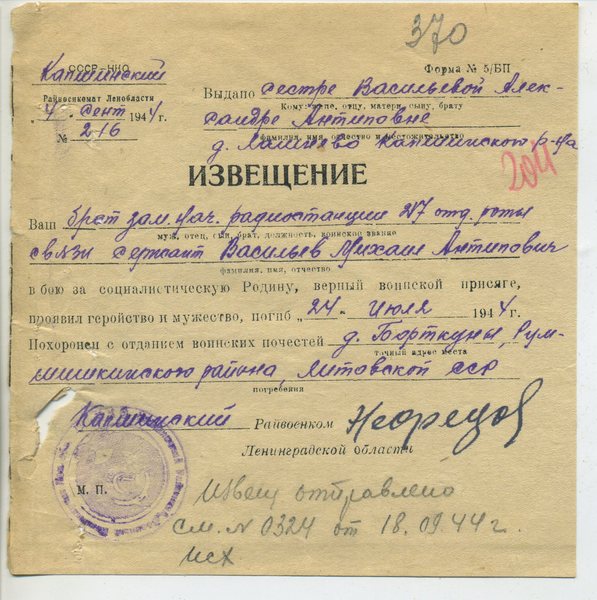 370
СССР-НКО
Капшинский
Райвоенкомат Ленобласти
"4" сент 1944 г.
№ 216
Форма № 5/БП
Выдано сестре Васильевой Алек-
Кому: жене, отцу, матери, сыну, брату
сандре Антиповне
фамилия, имя, отчество и местожительство
д. Капшинского р-на
204
ИЗВЕЩЕНИЕ
Ваш брат зам. нач. радиостанции 217 отд. роты
муж, отец, сын, брат, должность, воинское звание
связи сержант Васильев Михаил Антипович
фамилия, имя, отчество
в бою за социалистическую Родину, верный воинской присяге,
проявил геройство и мужество, погиб "24" июля 1944 г.
Похоронен с отданием воинских почестей д. Борткуны, Рум-
точный адрес места
шишкинского района, Литовской ССР
погребения
Капшинский Райвоенком
Ленинградской области
М. П.
Извещ отправлено
см. N 0324 от 18.09.44 г.
исх